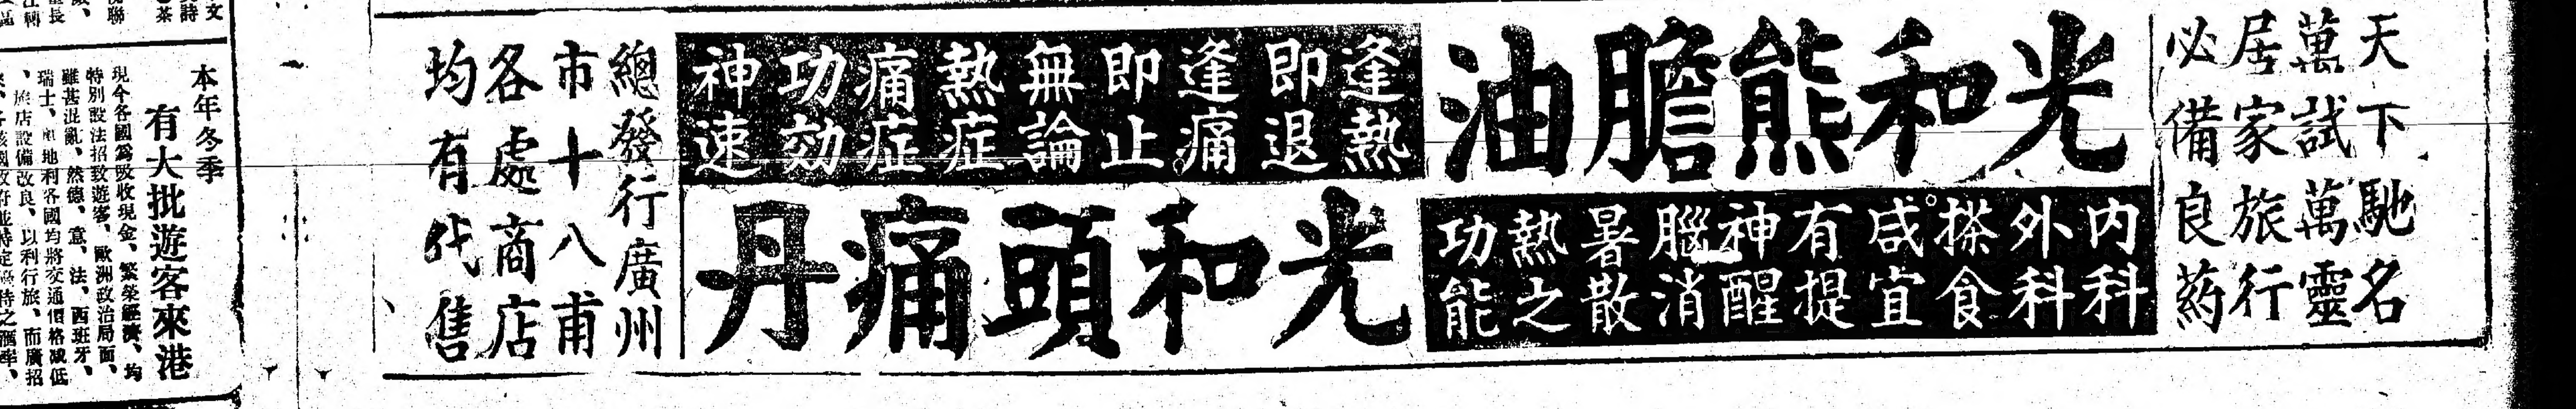 天下馳名
萬試萬靈
居家旅行
必備良药
光和熊膽油
內科
外科
搽食
咸宜
有提
神醒
腦消
暑散
熱之
功能
逢熱
即退
逢痛
即止
無論
熱症
痛症
功効
神速
光和頭痛丹
總發行廣州
市十八甫
各處商店
均有代售
本年冬季
有大批遊客來港
現今各國為吸收現金、繁榮經濟、均
特別設法招致遊客、歐洲政治局面、
雖甚混亂、然德、意、法、西班牙、
瑞士、奧地利各國均將交通價格減低
、旅店設備改良、以利行旅、而廣招